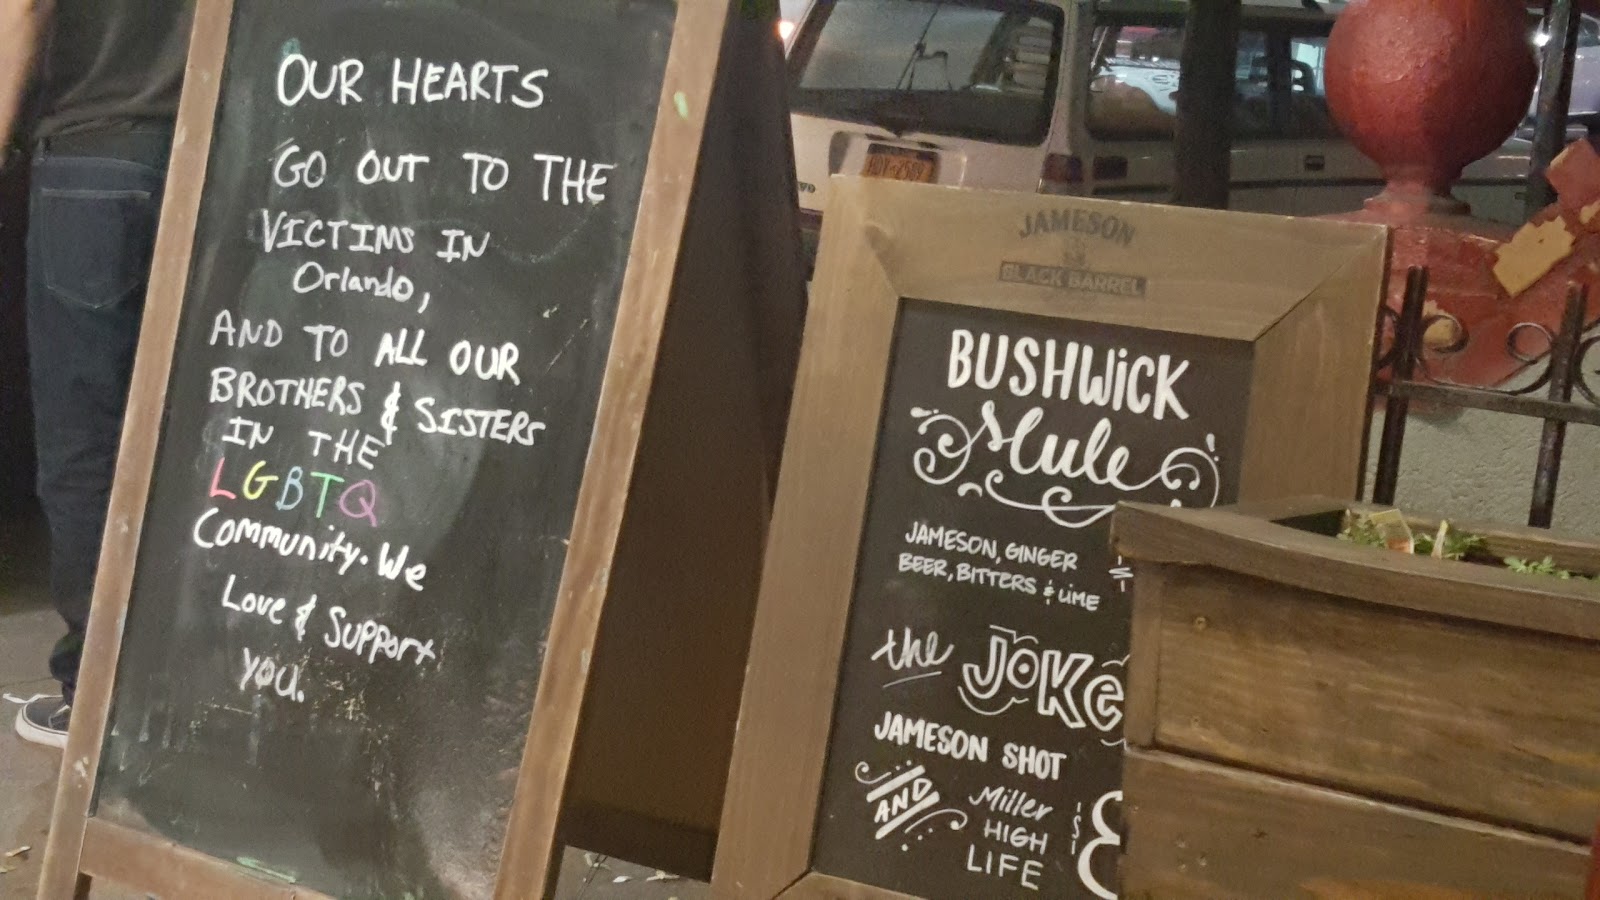 OUR HEARTS
GO OUT TO THE
VICTIMS IN
Orlando,
AND TO ALL OUR
BROTHERS & SISTERS
IN THE
LGBTQ
Community. We
Love & Support
you.
JAMESON
BLACK BARREL
BUSHWiCK
Mule
JAMESON, GINGER
BEER, BITTERS & LIME
the JOKe
JAMESON SHOT
AND Miller
HIGH
LIFE
$